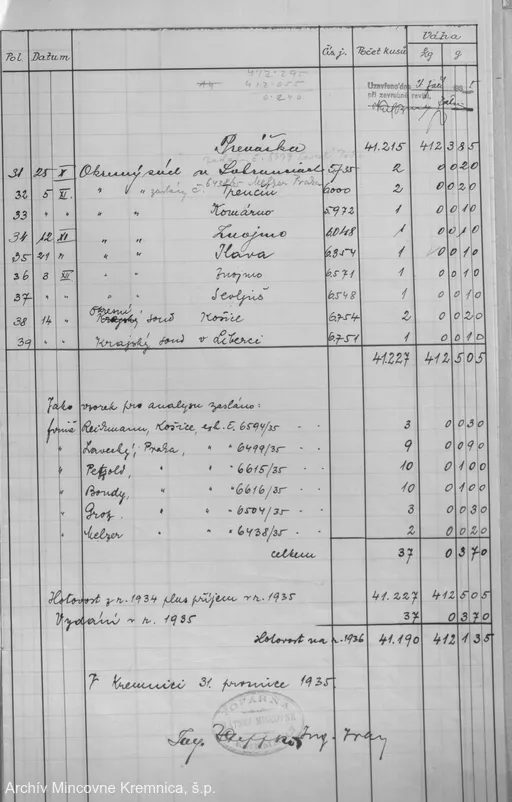 Váha
Pol. Datum Čís. j. Počet kusů kg g
412·295
412·055
0·240
Uzavřeno dne
při závěrečné revisi.
Prenáška 41.215 412 385
31 25 X Okresný súd v Sobranciach 5735 2 0 020
32 5 XI. " " Trenčín 6000 2 0 020
33 " " " " Komárno 5972 1 0 010
34 12 XI " " Znojmo 6048 1 0 010
35 21 " " " Ilava 6354 1 0 010
36 3 XII " " Znojmo 6571 1 0 010
37 " " " " Sevljuš 6548 1 0 010
38 14 " Okresní soud Košice 6754 2 0 020
39 " " Krajský soud v Liberci 6751 1 0 010
41.227 412 505
Jako vzorek pro analysu zasláno:
firmě Reichmann, Košice, exh. č. 6594/35 3 0 030
" Lavecký, Praha, " " 6499/35 9 0 090
" Petzold, " " " 6615/35 10 0 100
" Bondy, " " " 6616/35 10 0 100
" Groz. " " " 6504/35 3 0 030
" Melzer " " 6438/35 2 0 020
celkem 37 0 370
Hotovost z r. 1934 plus příjem v r. 1935 41.227 412 505
Vydání v r. 1935 37 0 370
Hotovost na r. 1936 41.190 412 135
V Kremnici 31. prosince 1935.
Archív Mincovne Kremnica, š.p.